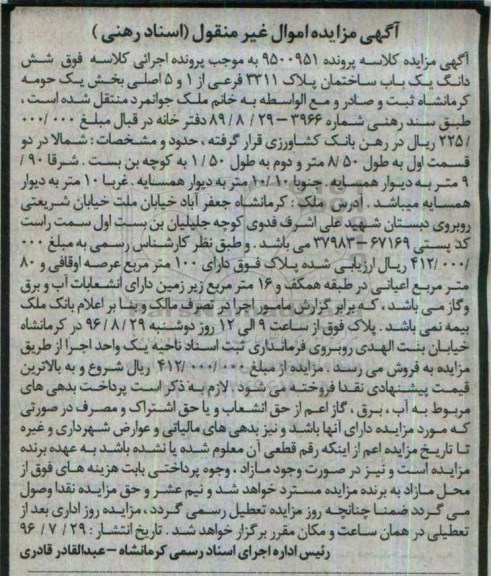 آگهی مزایده اموال غیر منقول (اسناد رهنی)
آگهی مزایده کلاسه پرونده ۹۵۰۰۹۵۱ به موجب پرونده اجرائی کلاسه فوق شش
دانگ یک باب ساختمان پلاک ۳۳۱۱ فرعی از ۱ و ۵ اصلی بخش یک حومه
کرمانشاه ثبت و صادر و مع الواسطه به خانم ملک جوانمرد منتقل شده است ،
طبق سند رهنی شماره ۳۹۶۶ – ۲۹ / ۸ / ۸۹ دفتر خانه در قبال مبلغ ۰۰۰/۰۰۰
/ ۲۲۵ ریال در رهن بانک کشاورزی قرار گرفته ، حدود و مشخصات : شمالا در دو
قسمت اول به طول ۸/۵۰ متر و دوم به طول ۱/۵۰ به کوچه بن بست . شرقا ۹۰ /
۹ متر به دیوار همسایه . جنوبا ۱۰/۱۰ متر به دیوار همسایه . غربا ۱۰ متر به دیوار
همسایه میباشد . آدرس ملک : کرمانشاه جعفر آباد خیابان ملت خیابان شریعتی
روبروی دبستان شهید علی اشرف فدوی کوچه جلیلیان بن بست اول سمت راست
کد پستی ۶۷۱۶۹ – ۳۷۹۸۳ می باشد . و طبق نظر کارشناس رسمی به مبلغ ۰۰۰
/۴۱۲/۰۰۰ ریال ارزیابی شده پلاک فوق دارای ۱۰۰ متر مربع عرصه اوقافی و ۸۰
متر مربع اعیانی در طبقه همکف و ۱۶ متر مربع زیر زمین دارای انشعابات آب و برق
و گاز می باشد ، که برابر گزارش مامور اجرا در تصرف مالک و بنا بر اعلام بانک ملک
بیمه نمی باشد . پلاک فوق از ساعت ۹ الی ۱۲ روز دوشنبه ۲۹ / ۸ / ۹۶ در کرمانشاه
خیابان بنت الهدی روبروی فرمانداری ثبت اسناد ناحیه یک واحد اجرا از طریق
مزایده به فروش می رسد . مزایده از مبلغ ۴۱۲/۰۰۰/۰۰۰ ریال شروع و به بالاترین
قیمت پیشنهادی نقدا فروخته می شود . لازم به ذکر است پرداخت بدهی های
مربوط به آب ، برق ، گاز اعم از حق انشعاب و یا حق اشتراک و مصرف در صورتی
که مورد مزایده دارای آنها باشد و نیز بدهی های مالیاتی و عوارض شهرداری و غیره
تا تاریخ مزایده اعم از اینکه رقم قطعی آن معلوم شده یا نشده باشد به عهده برنده
مزایده است و نیز در صورت وجود مازاد ، وجوه پرداختی بابت هزینه های فوق از
محل مازاد به برنده مزایده مسترد خواهد شد و نیم عشر و حق مزایده نقدا وصول
می گردد ضمنا چنانچه روز مزایده تعطیل رسمی گردد ، مزایده روز اداری بعد از
تعطیلی در همان ساعت و مکان مقرر برگزار خواهد شد . تاریخ انتشار : ۲۹ / ۷ / ۹۶
رئیس اداره اجرای اسناد رسمی کرمانشاه – عبدالقادر قادری